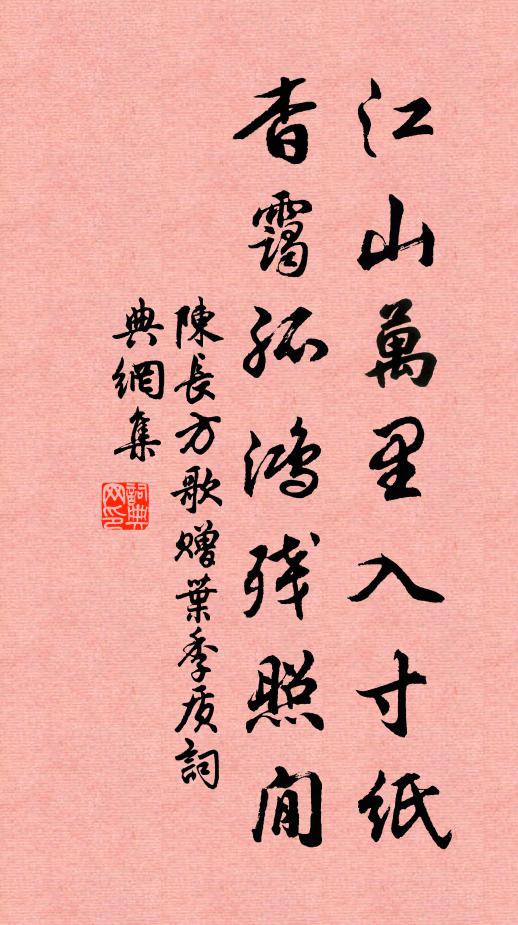 江山萬里入寸紙
杳靄孤鴻殘照間
陳長方歌贈葉季质詞
典網集
詞典
网印